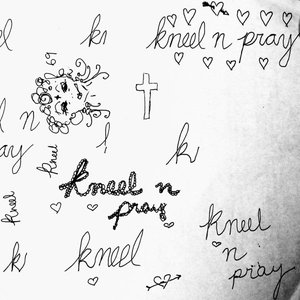 el
k
kneel n pray
69
n
ay
k
kneel
kneel
kneel n
pray
k
kneel
kneel
n
pray